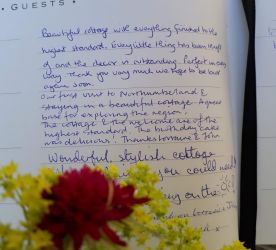 GUESTS
Beautiful cottage with everything finished to the
highest standard. Every little thing has been thought
of and the decor is outstanding. Perfect in every
way. Thank you very much we hope to be back
again soon.
Our first visit to Northumberland &
staying in a beautiful cottage. A great
base for exploring the region.
The cottage & the welcome are of the
highest standard. The birthday cake
was delicious! Thanks Lorraine & John
Wonderful, stylish cottage
you could need!
on the